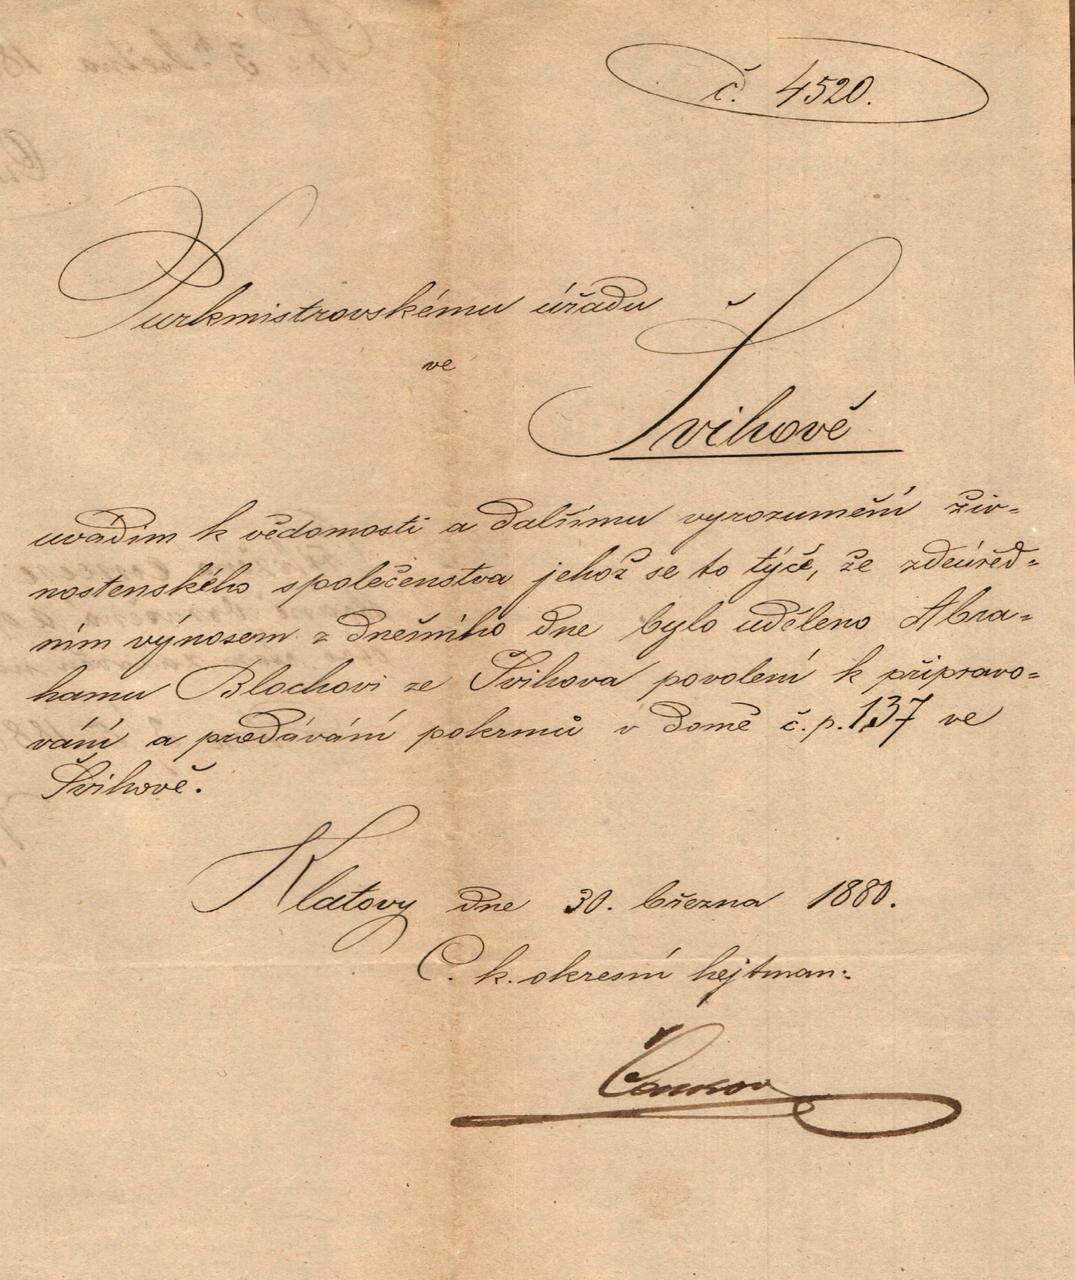 č. 4520.
Purkmistrovskému úřadu
ve
Švihově
uvádím k vědomosti a dalšímu vyrozumění živ-
nostenského společenstva jehož se to týče, že zdeúřed-
ním výnosem z dnešního dne bylo uděleno Abra-
hamu Blochovi ze Švihova povolení k připravo-
vání a prodávání pokrmů v domě č. p. 137 ve
Švihově.
Klatovy dne 30. března 1880.
C. k. okresní hejtman: